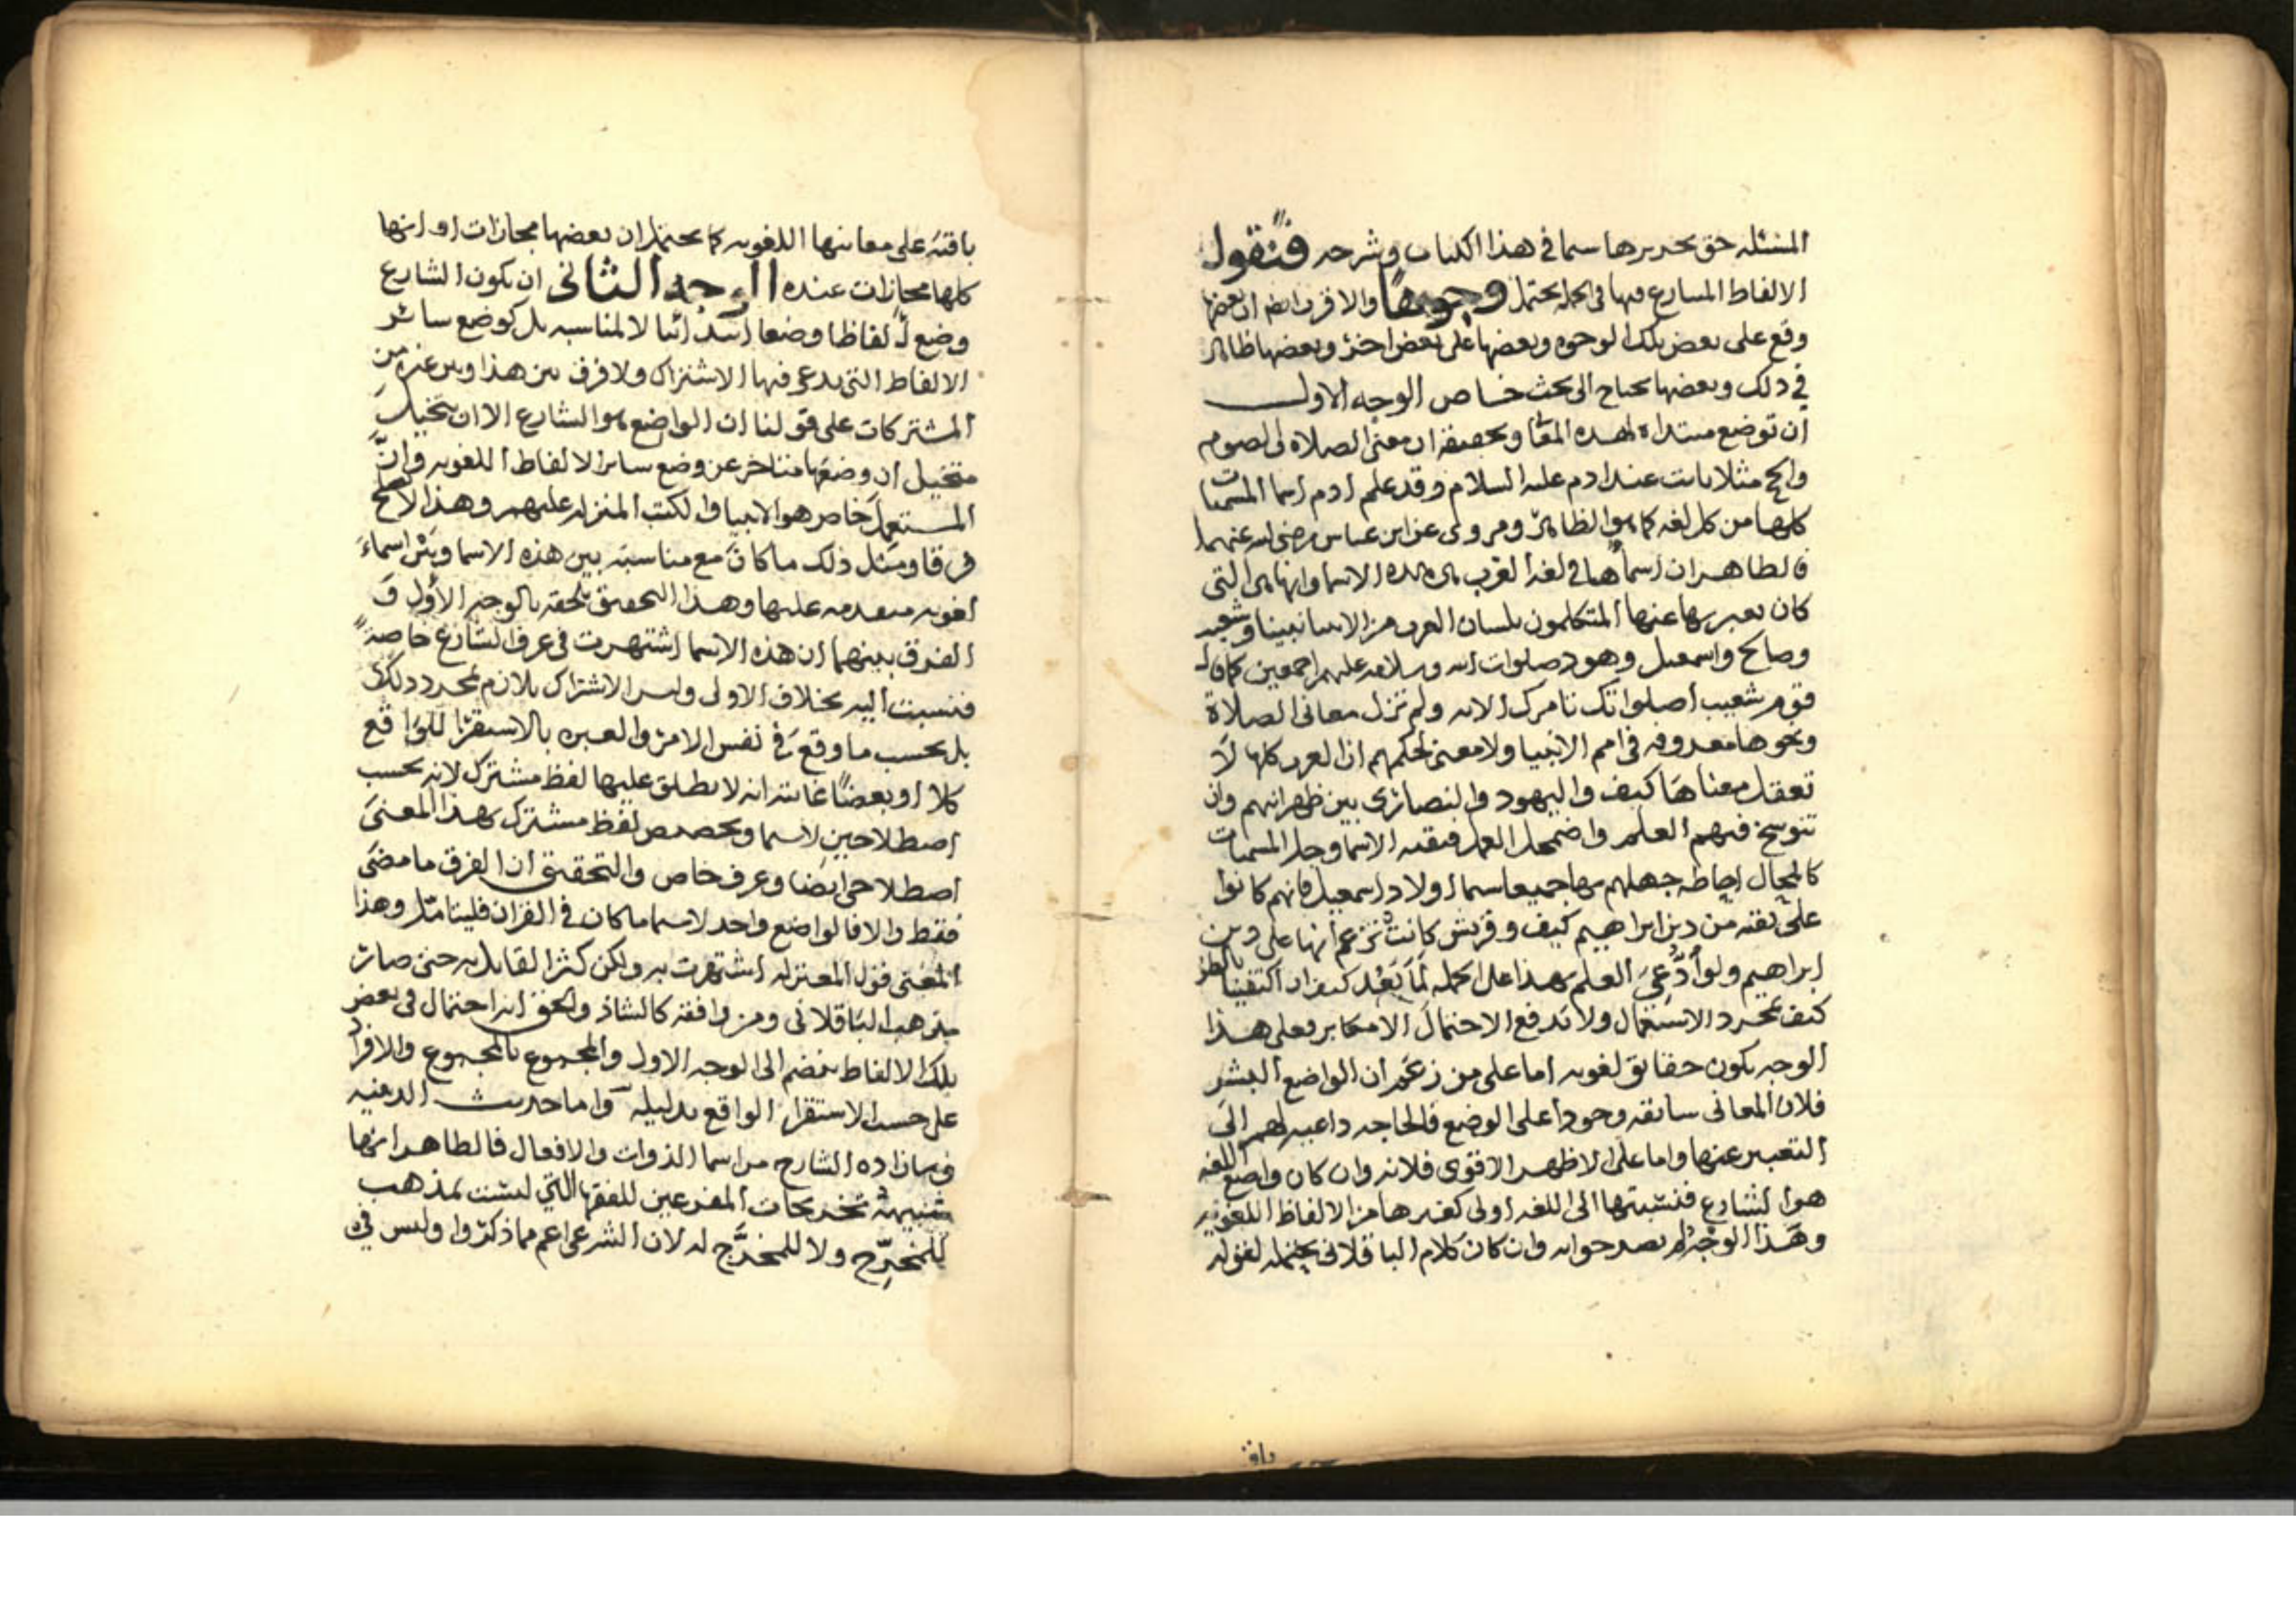 المسئله حق تحريرها سيما في هذا الكتاب وشرحه فنقول
الالفاظ المتنازع فيها في الجمله يحتمل وجوها والاقرب انه ان بعضها
وقع على بعض تلك الوجوه وبعضها على بعض اخر وبعضها ظاهر
في ذلك وبعضها يحتاج الى بحث خاص الوجه الاول
ان توضع مبتداه لهذه المعاني وتحقيقه ان معنى الصلاه والصوم
والحج مثلا ثابت عند ادم عليه السلام وقد علم ادم اسما المسميات
كلها من كل لغه كما هو الظاهر ومروي عن ابن عباس رضي الله عنهما
فالظاهر ان اسماها في لغه العرب هي هذه الاسما وانها هي التي
كان يعبر بها عنها المتكلمون بلسان العرب من الانبيا نبينا وشعيب
وصالح واسمعيل وهود صلوات الله وسلامه عليهم اجمعين كما قال
قوم شعيب اصلواتك تامرك الايه ولم تزل معاني الصلاة
ونحوها معروفه في امم الانبيا ولا معنى لحكمهم ان العرب كلها لا
تعقل معناها كيف واليهود والنصارى بين ظهرانيهم وان
تنوسخ فيهم العلم واضمحل العمل فبقيه الاسما وجل المسميات
كالمحال احاطه جهلهم بها جميعا سيما اولاد اسمعيل فانهم كانوا
على بقيه من دين ابراهيم كيف وقريش كانت تزعم انها على دين
ابراهيم ولو ادعي العلم بهذا على الجمله لما بعد كيف ان اكتفينا بالظن
كيف بمجرد الاستعمال ولا يدفع الاحتمال الا مكابر فعلى هذا
الوجه يكون حقايق لغويه اما على من زعم ان الواضع البشر
فلان المعاني سابقه وجودا على الوضع فالحاجه داعيه لهم الى
التعبير عنها واما على الاظهر الاقوى فلانه وان كان واضع اللغه
هو الشارع فنسبتها الى اللغه اولى كغيرها من الالفاظ اللغويه
وهذا الوجه لم يصرحوا به وان كان كلام الباقلاني يحتمله لقوله
باق
باقيه على معانيها اللغويه كما يحتمل ان بعضها مجازات او انها
كلها مجازات عنده الوجه الثاني ان يكون الشارع
وضع الفاظا وضعا ابتدائيا لا لمناسبه بل كوضع سائر
الالفاظ التي يدعى فيها الاشتراك ولا فرق بين هذا وبين غيره من
المشتركات على قولنا ان الواضع هو الشارع الا ان يتخيل
متخيل ان وضعها متاخر عن وضع ساير الالفاظ اللغويه وان
المستعمل خاص هو الانبيا والكتب المنزله عليهم وهذا لا يصلح
فرقا ومثل ذلك ما كان مع مناسبة بين هذه الاسما وبين اسماء
لغويه متقدمه عليها وهذا التحقيق تلحقه بالوجه الأول و
الفرق بينهما ان هذه الاسما اشتهرت في عرف الشارع خاصة
فنسبت اليه بخلاف الاولى وليس الاشتراك بلازم لمجرد ذلك
بل بحسب ما وقع في نفس الامر والعبره بالاستقرا للواقع
كلا او بعضا غايته انه لا يطلق عليها لفظ مشترك لانه بحسب
اصطلاحين لاسيما وتخصيص لفظ مشترك بهذا المعنى
اصطلاحي ايضا وعرف خاص والتحقيق ان الفرق ما مضى
فقط والا فالواضع واحد لاسيما ما كان في القران فليتامل وهذا
المعنى قول المعتزله اشتهرت به ولكن كثر القايل به حتى صار
مذهب الباقلاني ومن وافقه كالشاذ والحق انه احتمال في بعض
تلك الالفاظ ينضم الى الوجه الاول والمجموع بالمجموع والافراد
على حسب الاستقرا الواقع بدليله واما حديث الدينيه
فيما زاده الشارح من اسما الذوات والافعال فالظاهر انها
شبيهة تخريجات المفرعين للفقها التي ليست بمذهب
للمخرِّج ولا للمخرَّج له لان الشرعي اعم مما ذكروا وليس في